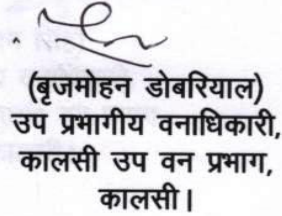 (बृजमोहन डोबरियाल)
उप प्रभागीय वनाधिकारी,
कालसी उप वन प्रभाग,
कालसी।